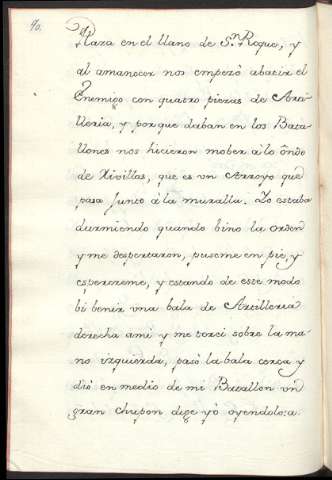 90.
Plaza en el llano de S.n Roque, y
al amanecer nos empezó abatir el
Enemigo con quatro piezas de Arti-
lleria, y porque daban en los Bata-
llones nos hicieron mober à lo õndo
de Xivillas, que es vn Arroyo que
pasa Junto à la muralla. Yo estaba
durmiendo quando bino la orden
y me despertaron, puseme en pie, y
esperereme, y estando de este modo
bi benir vna bala de Artilleria
derecha ami y me torci sobre la ma-
no yzquierda, pasò la bala cerca y
diò en medio de mi Batallon vn
gran chupon dige yò oyendolo: a